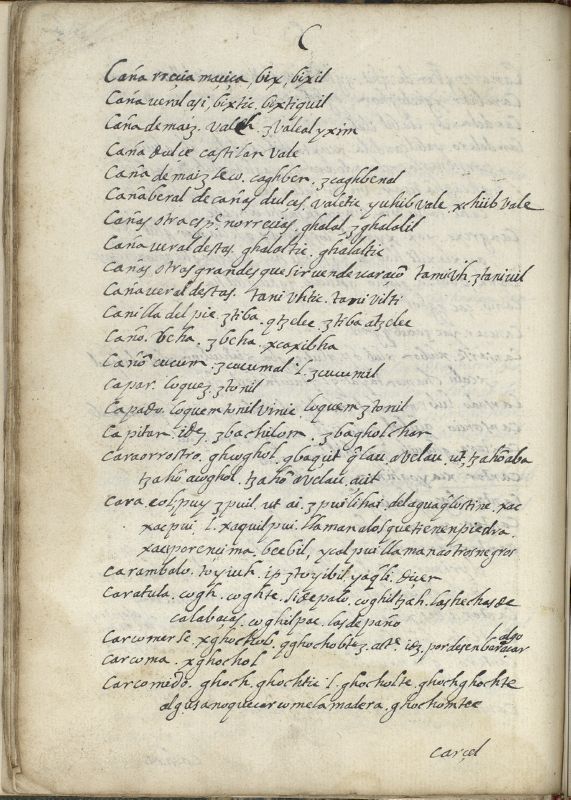 C
Caña rrecia maciça, bix, bixil
Caña veral asi, bixtic, bixtiquil
Caña de maiz. valeh. ʒ valealyxim
Caña dulce castilar vale
Caña de maiz seco. caghber. ʒ caghbenal
Cañaberal de cañas dulces. valetic yuhib vale. xchiib vale
Cañas otras espᵉ. no rrecias. ghalal, ʒ ghalolil
Cañaveral destas. ghalaltic, ghalaltic
Cañas otras grandes que sirven de varaçō tani vh. ʒ tanivil
Cañaveral destas. tani vhtic. tani vilti
Canilla del pie. ʒ tiba. qtzelec. ʒ tiba atzelec
Caño. beha. ʒ beha. xcaxibha
Cañō cucum. ʒ cucumal l. ʒ cucumil
Capar. loquez ʒ tonil
Capado. loquem tonil vinic. loquem ʒ tonil
Capitan. idez. ʒ bachilom. ʒ baghol chan
Cara o rrostro. ghoghol. qbaquit q̄lau ovelau. ut. tzahō aba
tzahō aghol. tzahō ovelau. auit
Cara. eolpuy ʒ puil. ut ai. ʒ puil ihai del aguaglostine. xac
xac pui. l. xaquil pui. llaman a los que tienen piedra.
xac por encima, bcebil, ycal pui llaman a otros negros
Carambalo. toyiuh. ip ʒ toyibil yaqli. diver
Caratula. cogh. coghte. si de palo, coghil tzah. las hechas de
calabaças. coghilpoc. las de paño
Carcomerse. xghochol. qghochobtez. actᵉ. idez, por desenbaraçar l. algo
Carcoma. xghochol
Carcomido. ghoch. ghochtic l. ghocholte. ghochghochte
al gusano que carcome la madera. ghochomtee
carçel